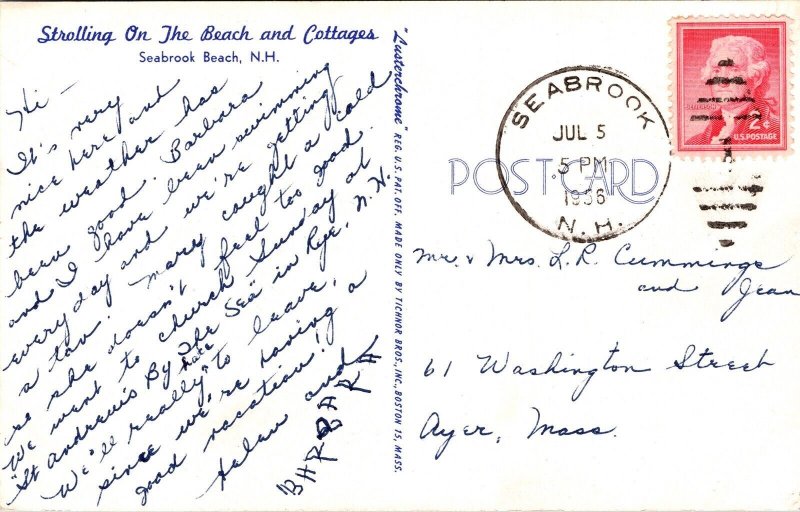 Strolling On The Beach and Cottages
Seabrook Beach, N.H.
Hi –
It's very
nice here and
the weather has
been good. Barbara
and I have been swimming
everyday and we're getting
a tan. Mary caught a cold
so she doesn't feel too good.
We went to church Sunday at
"St Andrews By The Sea" in Rye, N. H.
We'll really hate to leave,
since we're having a
good vacation!
Helen and
BARBARA
"Lusterchrome" REG. U.S. PAT. OFF. MADE ONLY BY TICHNOR BROS., INC., BOSTON 15, MASS.
POST CARD
SEABROOK
JUL 5
5 PM
1956
N. H.
JEFFERSON
2¢
U.S. POSTAGE
Mr. & Mrs. L. R. Cummings
and Jean
61 Washington Street
Ayer, Mass.